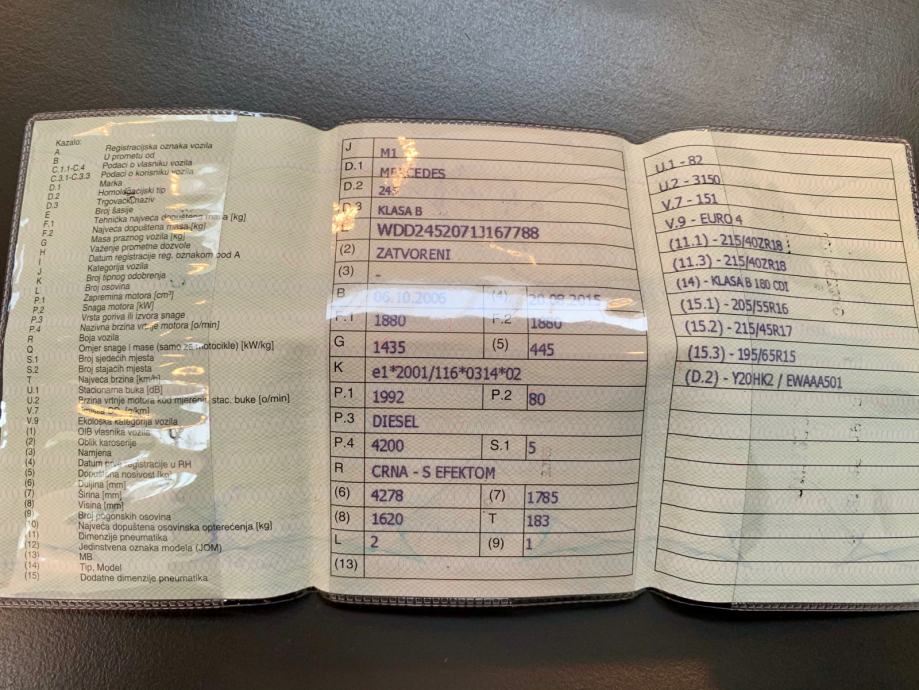 Kazalo:
A Registracijska oznaka vozila
B U prometu od
C.1.1-C.4 Podaci o vlasniku vozila
C.3.1-C.3.3 Podaci o korisniku vozila
D.1 Marka
D.2 Homologacijski tip
D.3 Trgovački naziv
E Broj šasije
F.1 Tehnička najveća dopuštena masa [kg]
F.2 Najveća dopuštena masa [kg]
G Masa praznog vozila [kg]
H Važenje prometne dozvole
I Datum registracije reg. oznakom pod A
J Kategorija vozila
K Broj tipnog odobrenja
L Broj osovina
P.1 Zapremina motora [cm³]
P.2 Snaga motora [kW]
P.3 Vrsta goriva ili izvora snage
P.4 Nazivna brzina vrtnje motora [o/min]
R Boja vozila
Q Omjer snage i mase (samo za motocikle) [kW/kg]
S.1 Broj sjedećih mjesta
S.2 Broj stajaćih mjesta
T Najveća brzina [km/h]
U.1 Stacionarna buka [dB]
U.2 Brzina vrtnje motora kod mjerenja stac. buke [o/min]
V.7
V.9 Ekološka kategorija vozila
(1) OIB vlasnika vozila
(2) Oblik karoserije
(3) Namjena
(4) Datum prve registracije u RH
(5) Dopuštena nosivost [kg]
(6) Duljina [mm]
(7) Širina [mm]
(8) Visina [mm]
(9) Broj pogonskih osovina
(10) Najveća dopuštena osovinska opterećenja [kg]
(11) Dimenzije pneumatika
(12) Jedinstvena oznaka modela (JOM)
(13) MB
(14) Tip, Model
(15) Dodatne dimenzije pneumatika
J M1
D.1 MERCEDES
D.2 245
D.3 KLASA B
E WDD2452071J167788
(2) ZATVORENI
(3) -
B 06.10.2006 (4) 20.08.2015
F.1 1880 F.2 1880
G 1435 (5) 445
K e1*2001/116*0314*02
P.1 1992 P.2 80
P.3 DIESEL
P.4 4200 S.1 5
R CRNA - S EFEKTOM
(6) 4278 (7) 1785
(8) 1620 T 183
L 2 (9) 1
(13)
U.1 - 82
U.2 - 3150
V.7 - 151
V.9 - EURO 4
(11.1) - 215/40ZR18
(11.3) - 215/40ZR18
(14) - KLASA B 180 CDI
(15.1) - 205/55R16
(15.2) - 215/45R17
(15.3) - 195/65R15
(D.2) - Y20HK2 / EWAAA501